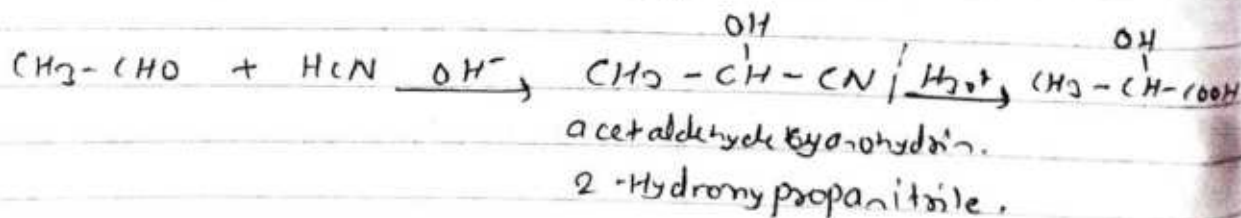 OH OH
CH3-CHO + HCN OH⁻→ CH3-CH-CN / H3O⁺→ CH3-CH-COOH
acetaldehyde cyanohydrin.
2-Hydroxypropanitrile.